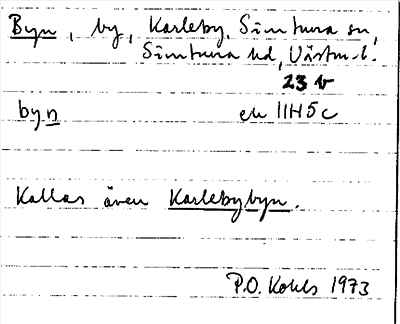 Byn, by, Karleby, Simtuna sn,
Simtuna hd, Västm. l.
23 v
byn ek 11H5c
Kallas även Karlebybyn.
P.O. Kohls 1973